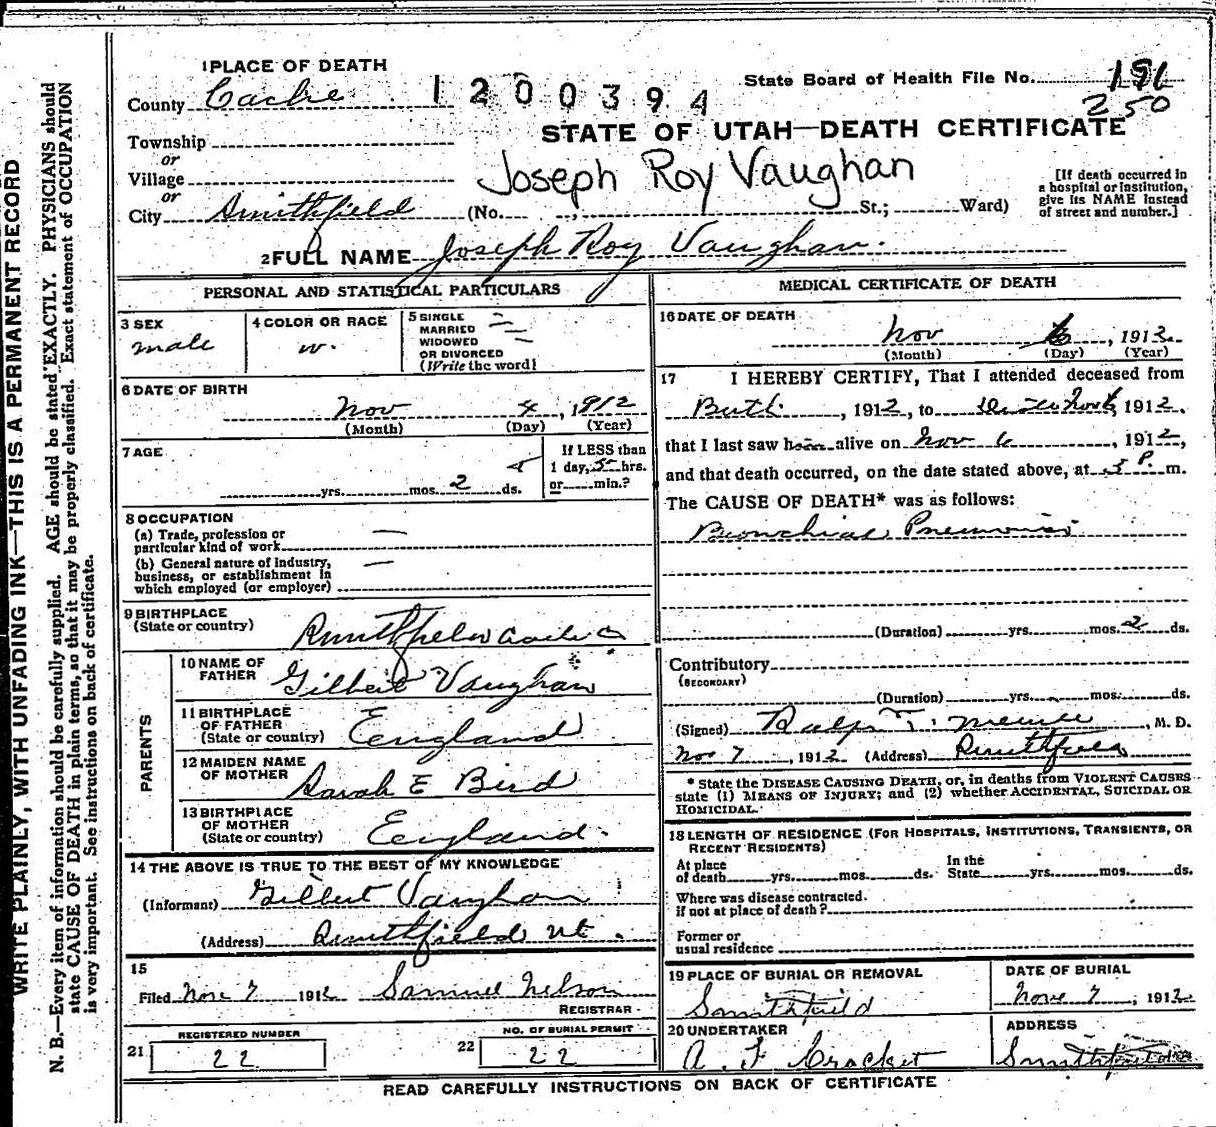 1 PLACE OF DEATH
County Cache
1200394
State Board of Health File No. 191
250
STATE OF UTAH—DEATH CERTIFICATE
Township
or
Village
or
City Smithfield
Joseph Roy Vaughan
(No. St.; Ward)
[If death occurred in
a hospital or institution,
give its NAME instead
of street and number.]
2 FULL NAME Joseph Roy Vaughan.
PERSONAL AND STATISTICAL PARTICULARS
3 SEX
male
4 COLOR OR RACE
w.
5 SINGLE
MARRIED
WIDOWED
OR DIVORCED
(Write the word)
6 DATE OF BIRTH
Nov 4, 1912
(Month) (Day) (Year)
7 AGE
yrs. mos. 2 ds.
If LESS than
1 day, 5 hrs.
or min.?
8 OCCUPATION
(a) Trade, profession or
particular kind of work —
(b) General nature of industry,
business, or establishment in
which employed (or employer) —
9 BIRTHPLACE
(State or country) Smithfield Cache Co
PARENTS
10 NAME OF
FATHER Gilbert Vaughan
11 BIRTHPLACE
OF FATHER
(State or country) England
12 MAIDEN NAME
OF MOTHER Sarah E Bird
13 BIRTHPLACE
OF MOTHER
(State or country) England.
14 THE ABOVE IS TRUE TO THE BEST OF MY KNOWLEDGE
(Informant) Gilbert Vaughan
(Address) Smithfield Ut.
15
Filed Nov 7 1912 Samuel Nelson
REGISTRAR
21 REGISTERED NUMBER
22
22 NO. OF BURIAL PERMIT
22
MEDICAL CERTIFICATE OF DEATH
16 DATE OF DEATH
Nov 6, 1912.
(Month) (Day) (Year)
17 I HEREBY CERTIFY, That I attended deceased from
Birth, 1912, to 1912.
that I last saw him alive on Nov 6, 1912,
and that death occurred, on the date stated above, at 5 P. m.
The CAUSE OF DEATH* was as follows:
Bronchial Pneumonia
(Duration) yrs. mos. 2 ds.
Contributory
(SECONDARY)
(Duration) yrs. mos. ds.
(Signed) Ralph T. Merrill, M. D.
Nov 7, 1912 (Address) Smithfield
* State the DISEASE CAUSING DEATH, or, in deaths from VIOLENT CAUSES
state (1) MEANS OF INJURY; and (2) whether ACCIDENTAL, SUICIDAL OR
HOMICIDAL.
18 LENGTH OF RESIDENCE (FOR HOSPITALS, INSTITUTIONS, TRANSIENTS, OR
RECENT RESIDENTS)
At place
of death yrs. mos. ds.
In the
State yrs. mos. ds.
Where was disease contracted.
if not at place of death?
Former or
usual residence
19 PLACE OF BURIAL OR REMOVAL
Smithfield
DATE OF BURIAL
Nov 7, 1912
20 UNDERTAKER
A. F Cracket
ADDRESS
Smithfield
READ CAREFULLY INSTRUCTIONS ON BACK OF CERTIFICATE
WRITE PLAINLY, WITH UNFADING INK—THIS IS A PERMANENT RECORD
N. B.—Every item of information should be carefully supplied. AGE should be stated EXACTLY. PHYSICIANS should
state CAUSE OF DEATH in plain terms, so that it may be properly classified. Exact statement of OCCUPATION
is very important. See instructions on back of certificate.